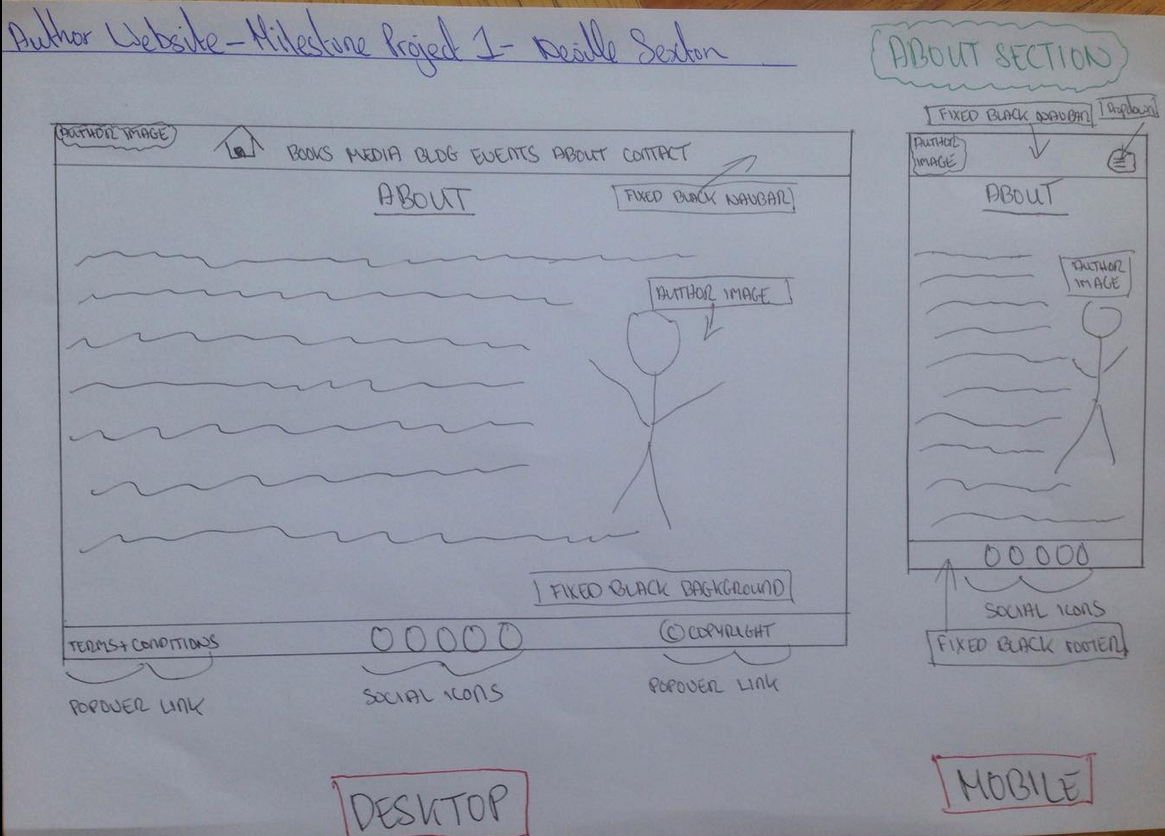 Author Website - Milestone Project 1 - Neville Sexton
ABOUT SECTION
AUTHOR IMAGE
BOOKS MEDIA BLOG EVENTS ABOUT CONTACT
ABOUT
FIXED BLACK NAVBAR
AUTHOR IMAGE
FIXED BLACK BAGKGROUND
TERMS + CONDITIONS
© COPYRIGHT
POPOVER LINK
SOCIAL ICONS
POPOVER LINK
DESKTOP
FIXED BLACK NAVBAR
Dropdown
AUTHOR
IMAGE
ABOUT
AUTHOR
IMAGE
SOCIAL ICONS
FIXED BLACK FOOTER
MOBILE